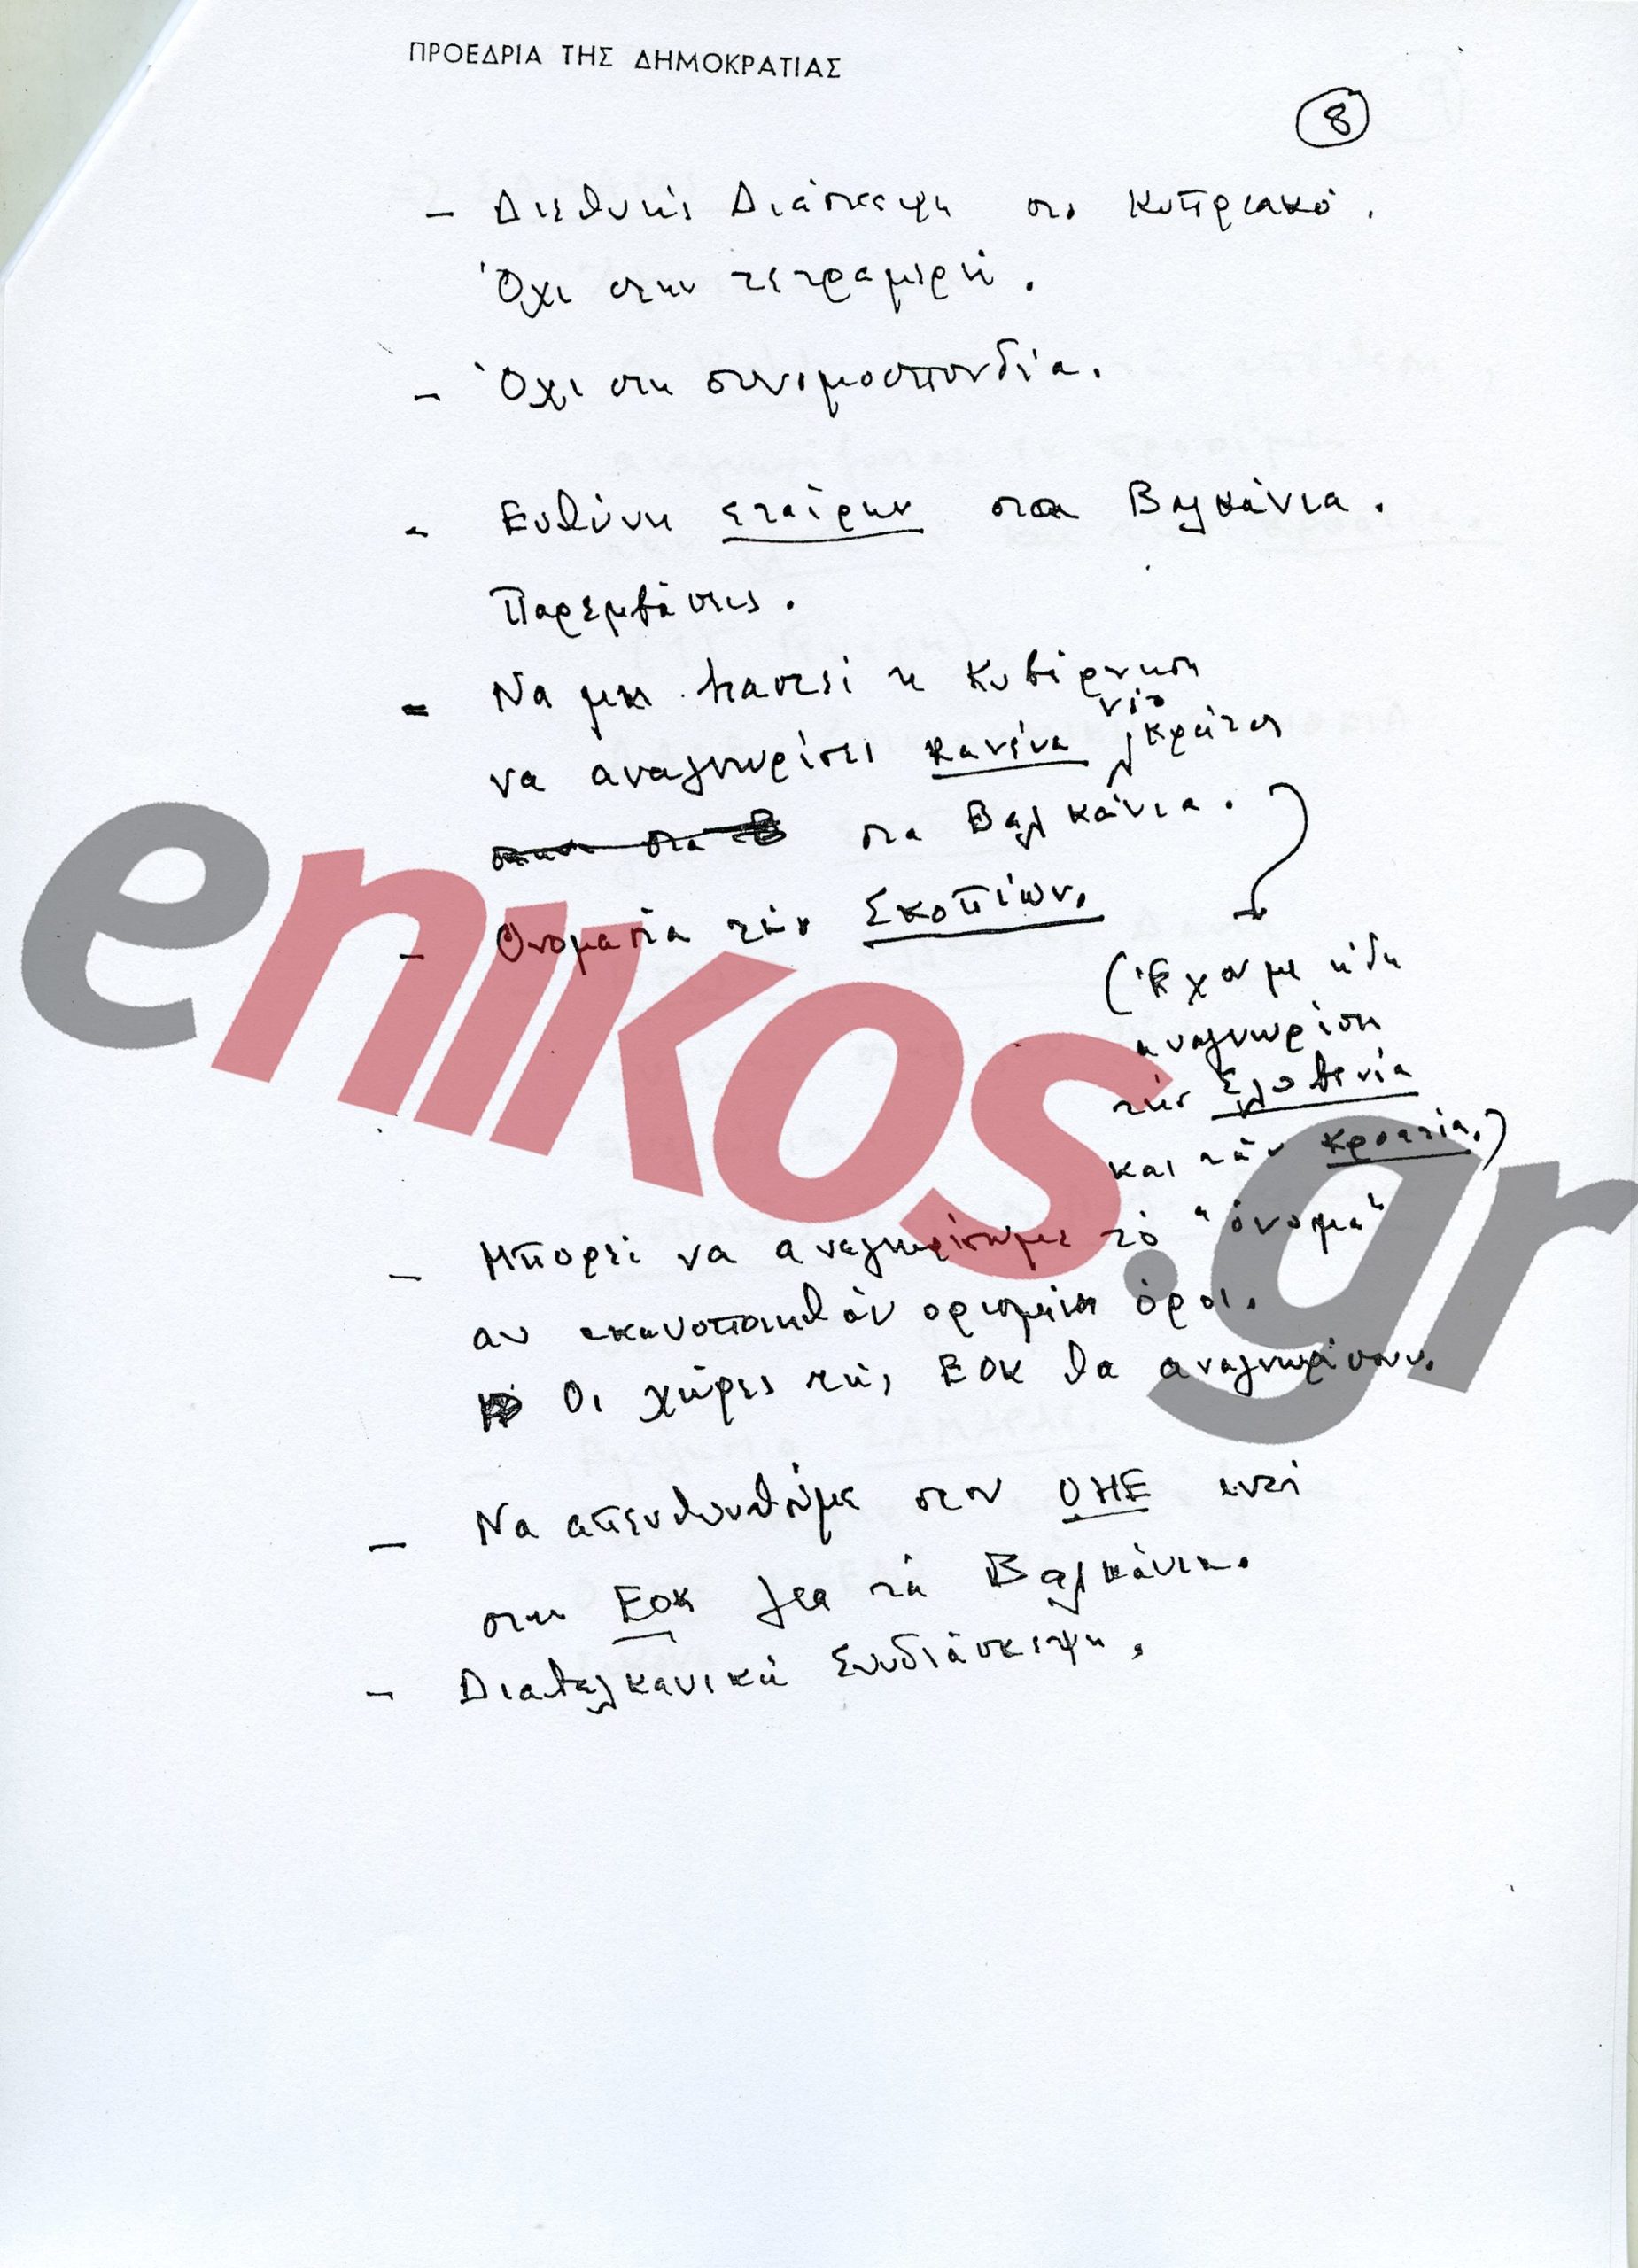 ΠΡΟΕΔΡΙΑ ΤΗΣ ΔΗΜΟΚΡΑΤΙΑΣ
8
– Διεθνής Διάσκεψη στο Κυπριακό.
Όχι στην τετραμερή.
– Όχι στη συνομοσπονδία.
– Ευθύνη εταίρων στα Βαλκάνια.
Παρεμβάσεις.
– Να μη πιεσθεί η Κυβέρνηση
νέο
να αναγνωρίσει κανένα κράτος
στα Β στα Βαλκάνια.
– Ονομασία των Σκοπίων.
(Έχουμε ήδη
αναγνωρίση
την Σλοβενία
και την Κροατία.)
– Μπορεί να αναγνωρίσωμε τό "όνομα"
αν ικανοποιηθούν ορισμένοι όροι.
Οι χώρες της ΕΟΚ θα αναγνωρίσουν.
– Να απευθυνθούμε στον ΟΗΕ αντί
στην ΕΟΚ για τά Βαλκάνια.
– Διαβαλκανική Συνδιάσκεψη.
enikos.gr